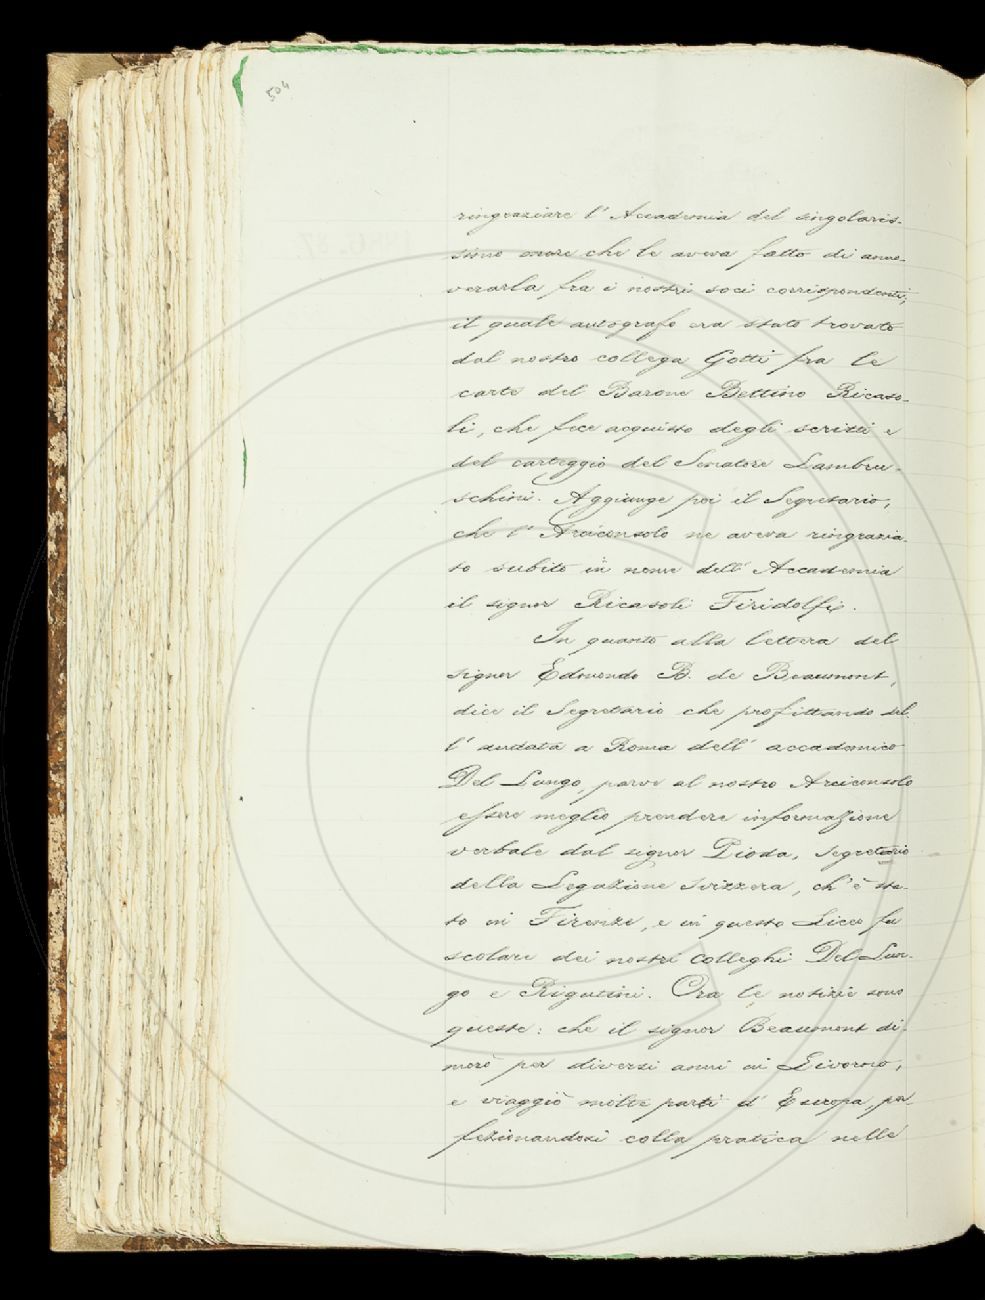 504
ringraziare l' Accademia del singolaris-
simo onore che le aveva fatto di anno-
verarla fra i nostri soci corrispondenti;
il quale autografo era stato trovato
dal nostro collega Gotti fra le
carte del Barone Bettino Ricaso-
li, che fece acquisto degli scritti e
del carteggio del Senatore Lambru-
schini. Aggiunge poi il Segretario,
che l' Arciconsolo ne aveva ringrazia-
to subito in nome dell' Accademia
il signor Ricasoli Firidolfi.
In quanto alla lettera del
signor Edmondo B. de Beaumont,
dice il Segretario che profittando del-
l' andata a Roma dell' accademico
Del Lungo, parve al nostro Arciconsolo
essere meglio prendere informazione
verbale dal signor Pioda, segretario
della Legazione svizzera, ch' è sta-
to in Firenze, e in questo Liceo fu
scolare dei nostri colleghi Del Lun-
go e Rigutini. Ora le notizie sono
queste: che il signor Beaumont di-
morò per diversi anni in Livorno,
e viaggiò molte parti d' Europa, per-
fezionandosi colla pratica nelle